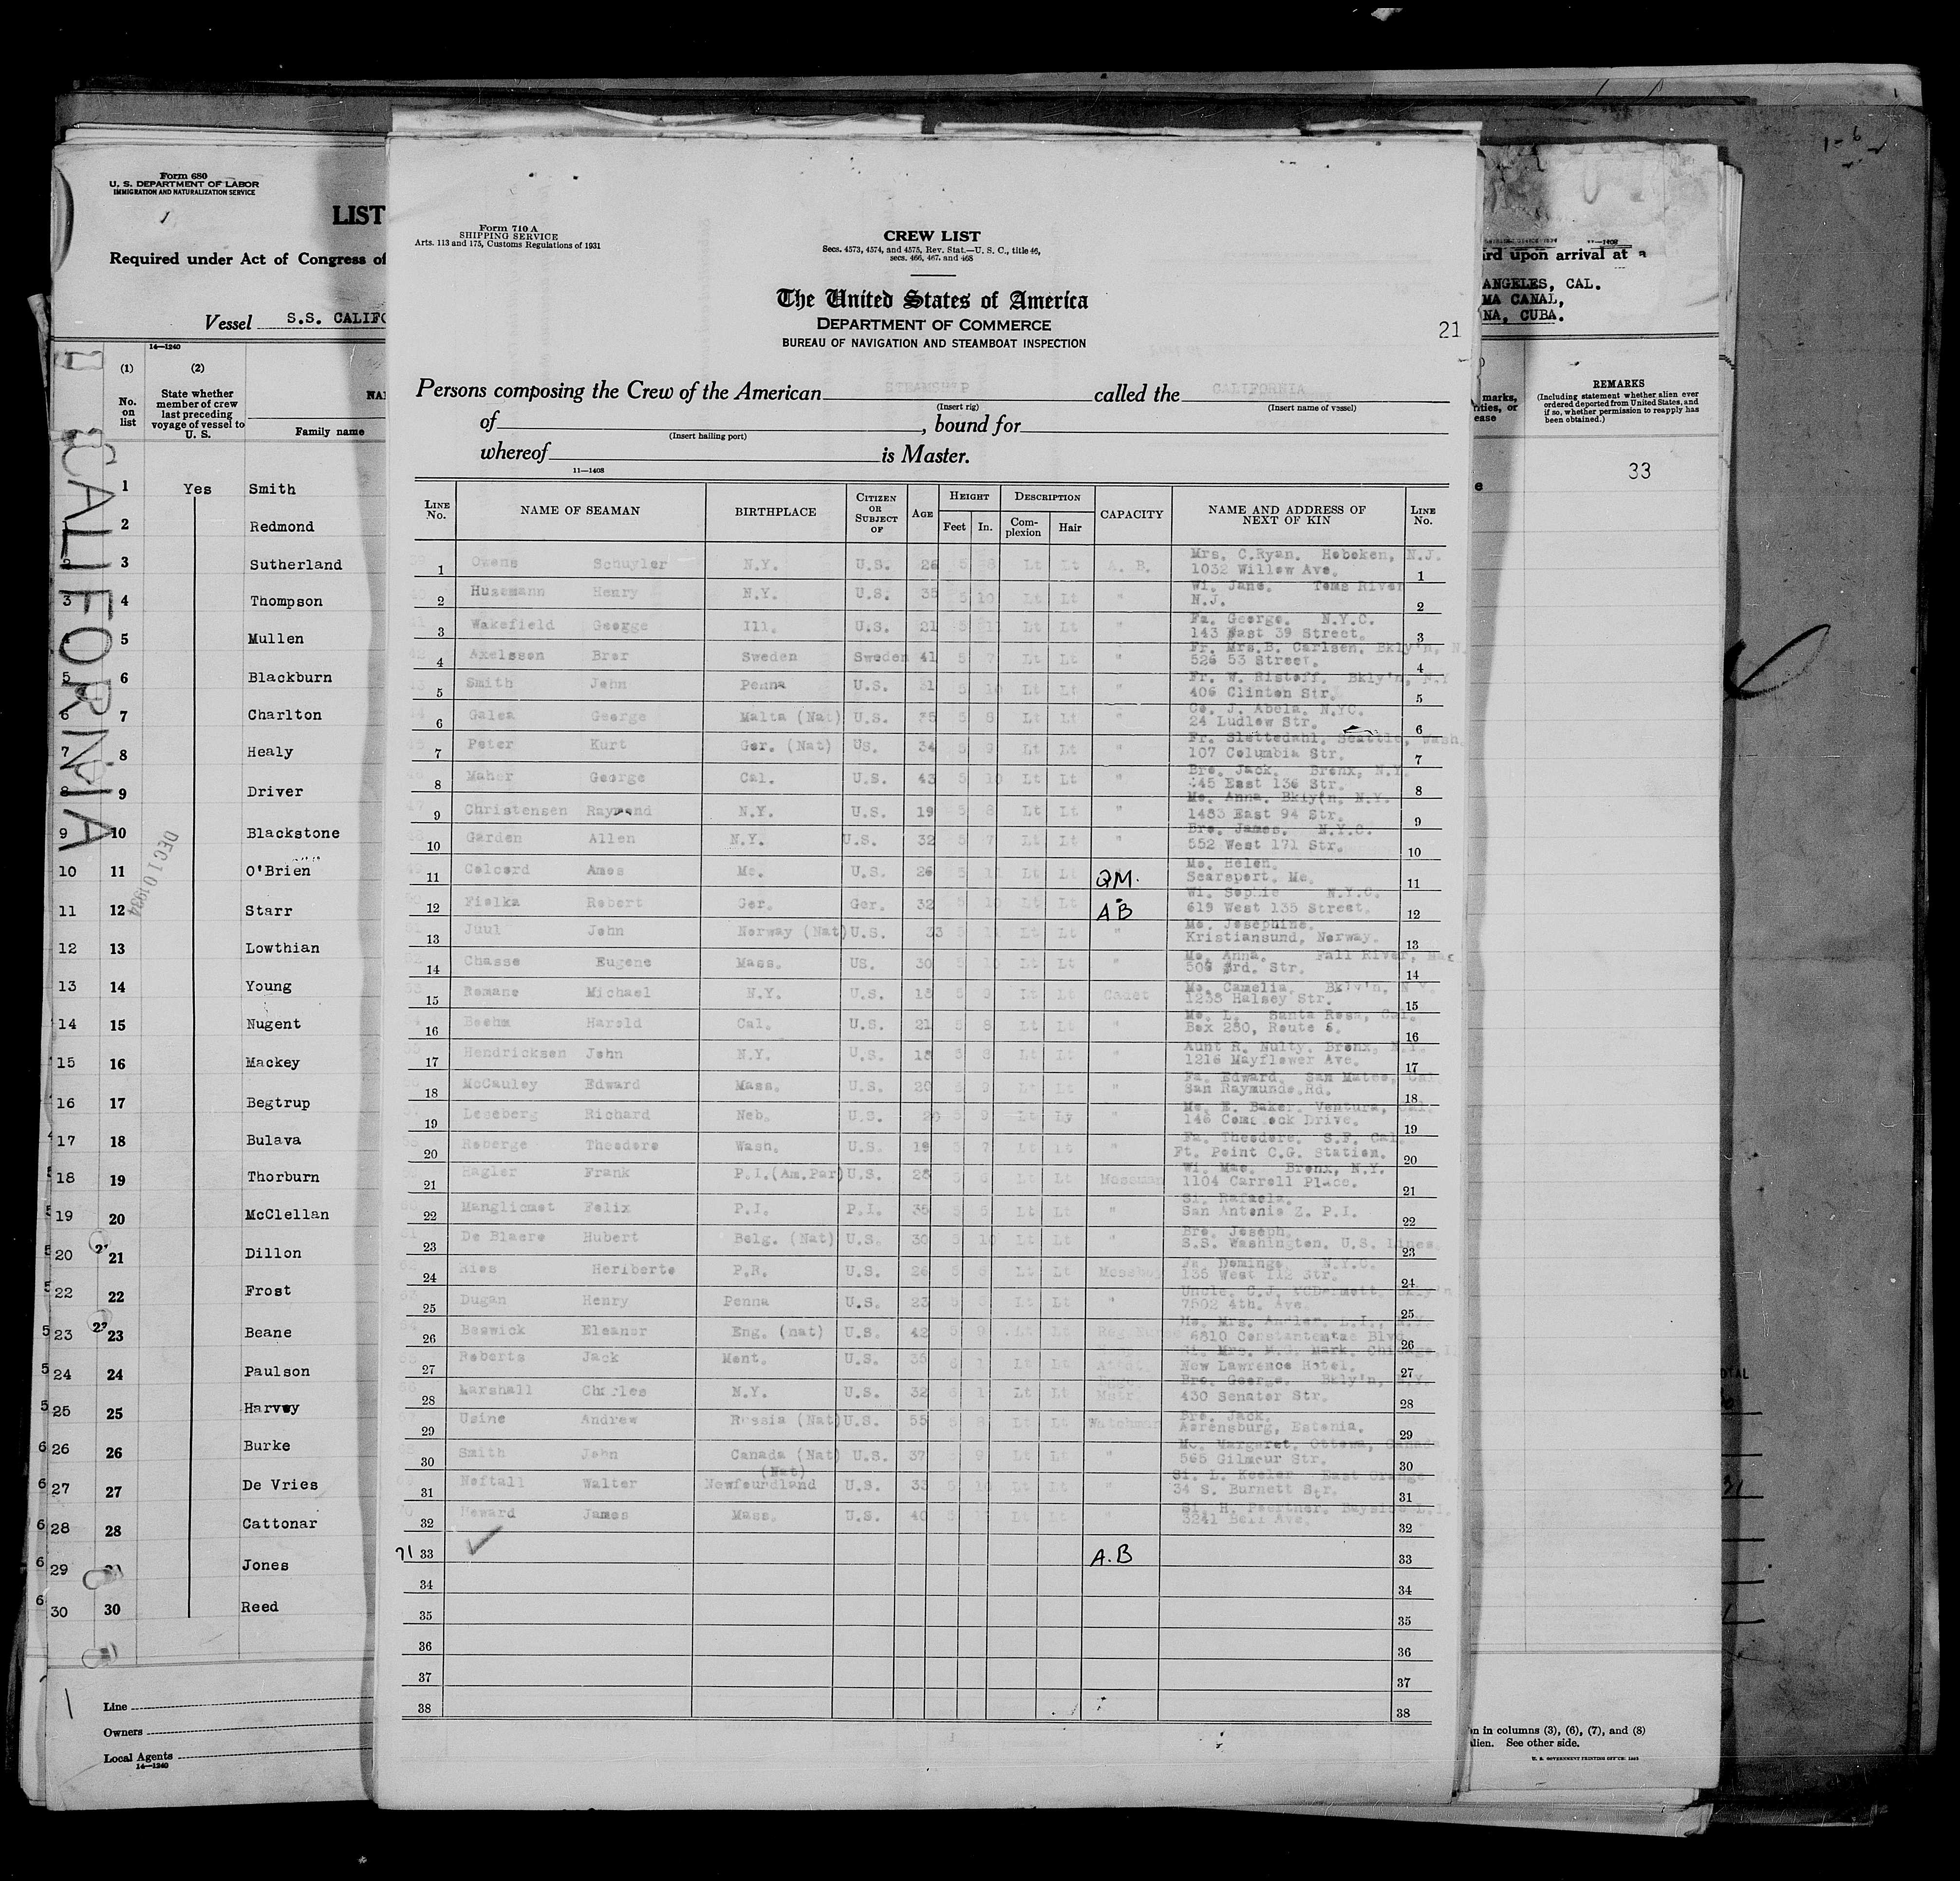 Form 680
U. S. DEPARTMENT OF LABOR
IMMIGRATION AND NATURALIZATION SERVICE
LIST
Required under Act of Congress of
Vessel S.S. CALIFO
14—1240
(1) (2)
No. on list
State whether member of crew last preceding voyage of vessel to U. S.
Family name
CALIFORNIA
DEC 10 1934
1 Yes Smith
2 Redmond
3 Sutherland
3 4 Thompson
4 5 Mullen
5 6 Blackburn
6 7 Charlton
7 8 Healy
8 9 Driver
9 10 Blackstone
10 11 O'Brien
11 12 Starr
12 13 Lowthian
13 14 Young
14 15 Nugent
15 16 Mackey
16 17 Begtrup
17 18 Bulava
18 19 Thorburn
19 20 McClellan
20 21 Dillon
22 22 Frost
23 23 Beane
24 24 Paulson
25 25 Harvey
26 26 Burke
27 27 De Vries
28 28 Cattonar
29 Jones
30 30 Reed
Line
Owners
Local Agents
14—1240
Form 710 A
SHIPPING SERVICE
Arts. 113 and 175, Customs Regulations of 1931
CREW LIST
Secs. 4573, 4574, and 4575, Rev. Stat.—U. S. C., title 46,
secs. 466, 467, and 468
The United States of America
DEPARTMENT OF COMMERCE
BUREAU OF NAVIGATION AND STEAMBOAT INSPECTION
21
Persons composing the Crew of the American STEAMSHIP called the CALIFORNIA
(Insert rig) (Insert name of vessel)
of , bound for
(Insert hailing port)
whereof is Master.
11—1408
LINE No. NAME OF SEAMAN BIRTHPLACE CITIZEN OR SUBJECT OF AGE HEIGHT Feet In. DESCRIPTION Complexion Hair CAPACITY NAME AND ADDRESS OF NEXT OF KIN LINE No.
1 Owens Schuyler N.Y. U.S. 26 5 8 Lt Lt A. B. Mrs. C.Ryan. Hoboken, N.J. 1
1032 Willow Ave.
2 Husemann Henry N.Y. U.S. 35 5 10 Lt Lt " Wi. Jane. Toms River 2
N.J.
3 Wakefield George Ill. U.S. 21 5 11 Lt Lt " Fa. George. N.Y.C. 3
143 East 39 Street.
4 Axelsson Bror Sweden Sweden 41 5 7 Lt Lt " Fr. Mrs.B. Carlsen. Bkly'n, N. 4
526 53 Street.
5 Smith John Penna U.S. 31 5 10 Lt Lt " Fr. W. Ristoff. Bkly'n, N.Y 5
406 Clinton Str.
6 Galea George Malta (Nat) U.S. 35 5 8 Lt Lt " Co. J. Abela. N.YC. 6
24 Ludlow Str.
7 Peter Kurt Ger. (Nat) US. 34 5 9 Lt Lt " Fr. Slettedahl. Seattle, Wash. 7
107 Columbia Str.
8 Maher George Cal. U.S. 43 5 10 Lt Lt " Bro. Jack. Bronx, N.Y. 8
445 East 136 Str.
9 Christensen Raymond N.Y. U.S. 19 5 8 Lt Lt " Mo. Anna. Bkly'n, N.Y. 9
1483 East 94 Str.
10 Garden Allen N.Y. U.S. 32 5 7 Lt Lt " Bro. James. N.Y.C. 10
552 West 171 Str.
11 Colcord Amos Me. U.S. 26 5 11 Lt Lt QM. Mo. Helen. 11
Searsport. Me.
12 Fielka Robert Ger. Ger. 32 5 10 Lt Lt AB Wi. Sophie N.Y.C. 12
619 West 135 Street.
13 Juul John Norway (Nat) U.S. 33 5 11 Lt Lt " Mo. Josephine. 13
Kristiansund, Norway.
14 Chasse Eugene Mass. US. 30 5 10 Lt Lt " Mo. Anna. Fall River, Mas 14
506 3rd. Str.
15 Romano Michael N.Y. U.S. 18 5 9 Lt Lt Cadet Mo. Camelia. Bkly'n. N.Y. 15
1238 Halsey Str.
16 Boehm Harold Cal. U.S. 21 5 8 Lt Lt " Mo. L. Santa Rosa, Cal. 16
Box 280, Route 6.
17 Hendricksen John N.Y. U.S. 18 5 8 Lt Lt " Aunt R. Nulty. Bronx, N.Y. 17
1216 Mayflower Ave.
18 McCauley Edward Mass. U.S. 20 5 9 Lt Lt " Fa. Edward. San Mateo, Cal 18
San Raymundo.Rd.
19 Leseberg Richard Neb. U.S. 20 5 9 Lt Ly " Mo. E. Baker. Ventura, Cal. 19
146 Comstock Drive.
20 Roberge Theodore Wash. U.S. 19 5 7 Lt Lt " Fa. Theodore. S.F. Cal. 20
Ft. Point C.G. Station.
21 Hagler Frank P.I.(Am.Par) U.S. 28 5 6 Lt Lt Messman Wi. Mae. Bronx, N.Y. 21
1104 Carroll Place.
22 Manglicmot Felix P.I. P.I. 35 5 5 Lt Lt " Si. Rafaela. 22
San Antonio Z. P.I.
23 De Blaere Hubert Belg. (Nat) U.S. 30 5 10 Lt Lt " Bro. Joseph. 23
S.S. Washington. U.S. Lines.
24 Rios Heriberto P.R. U.S. 26 5 5 Lt Lt Messboy Fa. Domingo N.Y.C. 24
135 West 112 Str.
25 Dugan Henry Penna U.S. 23 5 Lt Lt " Uncle. C.J. McDermott. Bkly'n 25
7502 4th. Ave.
26 Beswick Eleanor Eng. (nat) U.S. 42 5 9 Lt Lt Reg.Nurse Mo. Mrs. L.I., N.Y. 26
6810 Blvd.
27 Roberts Jack Mont. U.S. 35 6 1 Lt Lt Si. Mrs. M.J. Mark. Chicago,I 27
New Lawrence Hotel.
28 Marshall Charles N.Y. U.S. 32 6 1 Lt Lt Bgge. Mstr. Bro. George. Bkly'n, N.Y. 28
430 Senator Str.
29 Usine Andrew Russia (Nat) U.S. 55 5 8 Lt Lt Watchman Bro. Jack. 29
Asrensburg, Estonia.
30 Smith John Canada (Nat) U.S. 37 5 9 Lt Lt " Mo. Margaret. Ottawa, Canada 30
565 Gilmour Str.
31 Noftall Walter (Nat) Newfoundland U.S. 33 5 10 Lt Lt " Si. L. Keeler East Orange 31
34 S. Burnett Str.
32 Howard James Mass. U.S. 40 5 Lt Lt " Si. H. Bayside L.I. 32
3241 Bell Ave.
71 33 A.B 33
34 34
35 35
36 36
37 37
38 38
ard upon arrival at
ANGELES, CAL.
MA CANAL,
NA, CUBA.
REMARKS
(Including statement whether alien ever ordered deported from United States, and if so, whether permission to reapply has been obtained.)
marks,
ities, or
ease
33
en in columns (3), (6), (7), and (8)
alien. See other side.
U. S. GOVERNMENT PRINTING OFFICE